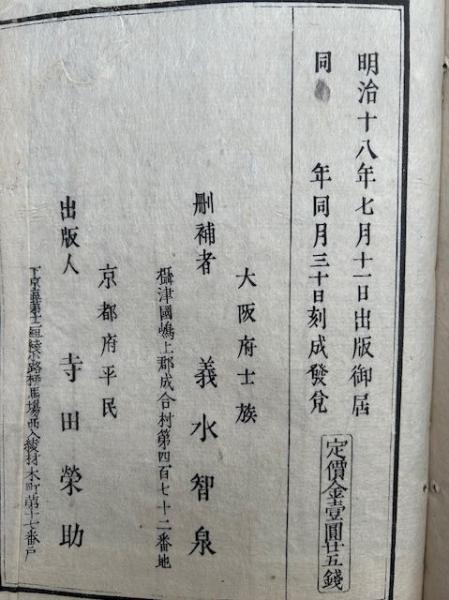 明治十八年七月十一日出版御届
同年同月三十日刻成發兌
定價金壹圓廿五錢
大阪府士族
刪補者 義水智泉
攝津國嶋上郡成合村第四百七十二番地
京都府平民
出版人 寺田榮助
下京區第十二組綾小路柳馬場西入綾材木町第十七番戸